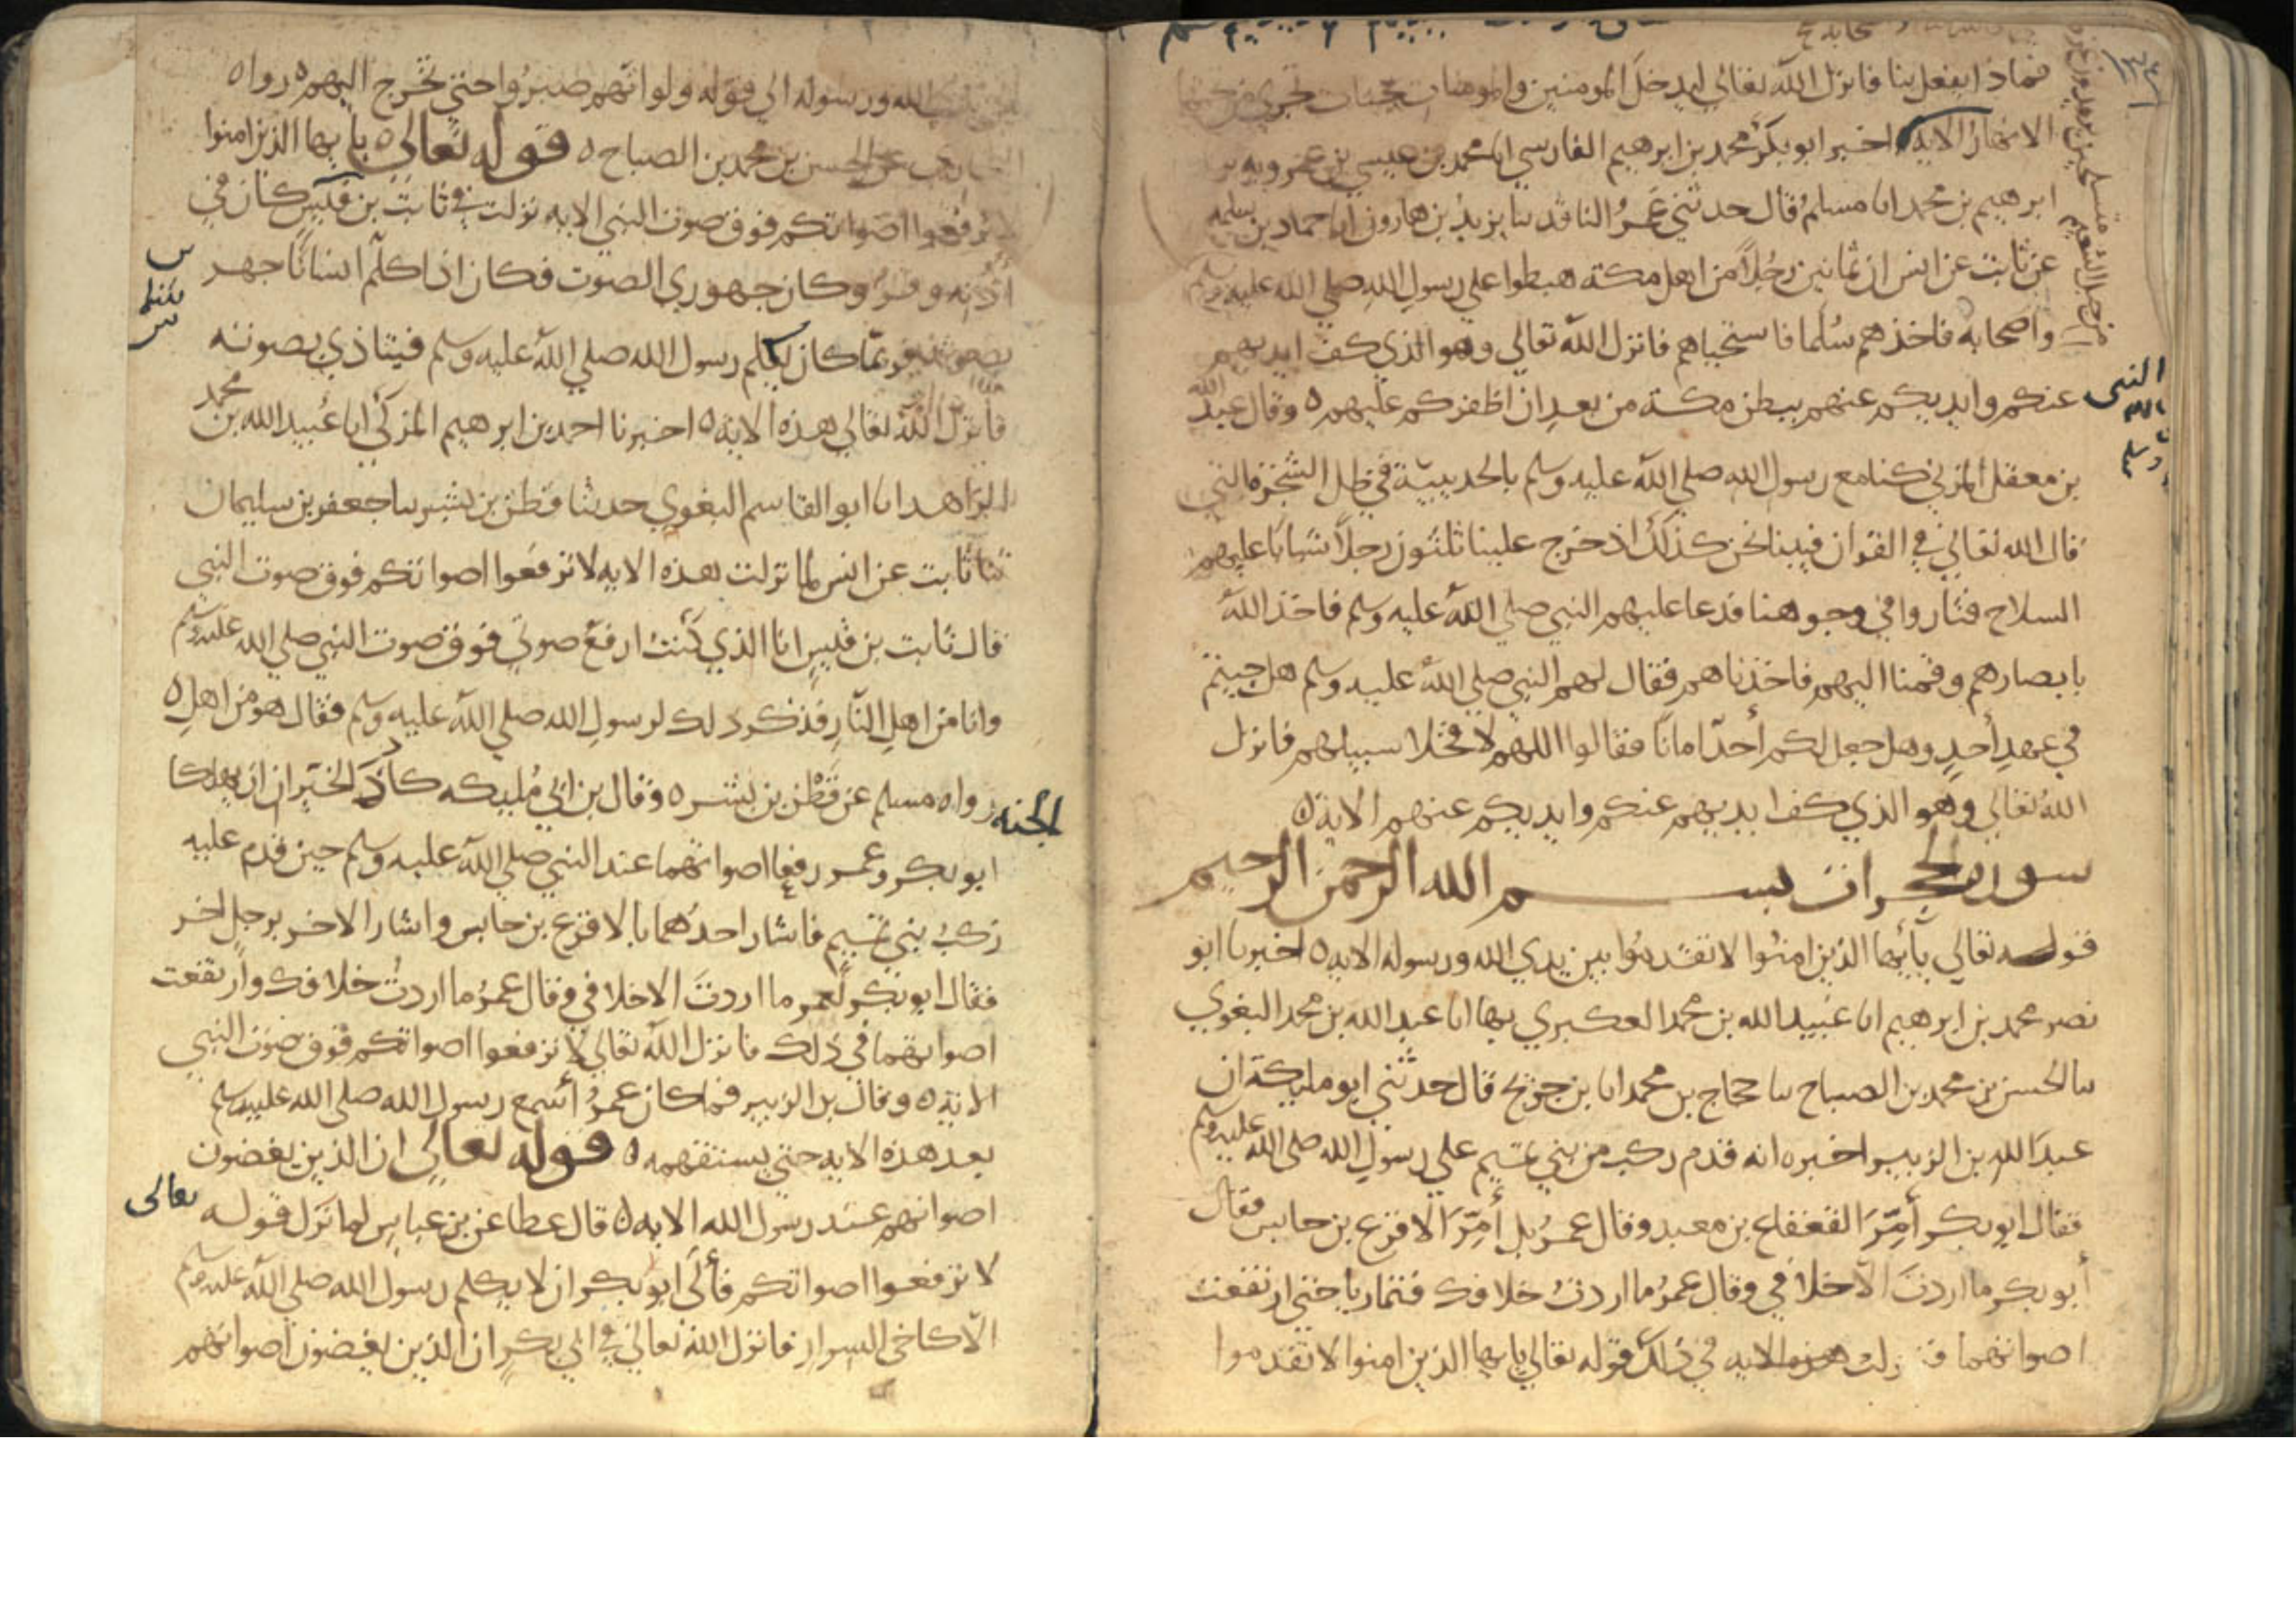 ١٣٤
فماذا يفعل بنا فانزل الله تعالي ليدخل المومنين والمومنات جنات تجري من تحتها
الانهار الايه اخبر ابو بكر محمد بن ابرهيم الفارسي انا محمد بن عيسي بن عمرويه
ابرهيم بن محمد انا مسلم قال حدثني عمر الناقد ثنا يزيد بن هارون انا حماد بن سلمه
عن ثابت عن انس ان ثمانين رجلا من اهل مكة هبطوا علي رسول الله صلي الله عليه وسلم
واصحابه فاخذهم سلما فاستحياهم فانزل الله تعالي وهو الذي كف ايديهم
عنكم وايديكم عنهم ببطن مكة من بعد ان اظفركم عليهم ه وقال عبد الله
بن معقل المزني كنا مع رسول الله صلي الله عليه وسلم بالحديبية في ظل الشجرة التي
قال الله تعالي في القران فبينا نحن كذلك اذ خرج علينا ثلثون رجلا شبابا عليهم
السلاح فثاروا في وجوهنا فدعا عليهم النبي صلي الله عليه وسلم فاخذ الله
بابصارهم وقمنا اليهم فاخذناهم فقال لهم النبي صلي الله عليه وسلم هل جيتم
في عهد أحد وهل جعل لكم أحد امانا فقالوا اللهم لا فخلا سبيلهم فانزل
الله تعالي وهو الذي كف ايديهم عنكم وايديكم عنهم الاية ه
سورة الحجرات بسم الله الرحمن الرحيم
قوله تعالي يأيها الذين امنوا لا تقدموا بين يدي الله ورسوله الايه ه اخبرنا ابو
نصر محمد بن ابرهيم انا عبيد الله بن محمد العكبري بها انا عبد الله بن محمد البغوي
ثنا الحسن بن محمد بن الصباح ثنا حجاج بن محمد انا بن جريج قال حدثني ابو مليكة ان
عبد الله بن الزبير اخبره انه قدم ركب من بني تميم علي رسول الله صلي الله عليه وسلم
فقال ابو بكر أمر القعقاع بن معبد وقال عمر بل أمر الاقرع بن حابس فقال
أبو بكر ما اردت الا خلافي وقال عمر ما اردت خلافك فتماريا حتي ارتفعت
اصواتهما فنزلت هذه الايه في ذلك قوله تعالي يايها الذين امنوا لا تقدموا
النبي
وسلم
الله ورسوله الي قوله ولو انهم صبروا حتي تخرج اليهم ه رواه
البخاري عن الحسن بن محمد بن الصباح ه قوله تعالي ه يايها الذين امنوا
لا ترفعوا اصواتكم فوق صوت النبي الايه نزلت في ثابت بن قيس كان في
أذنه وقر وكان جهوري الصوت فكان اذا كلم انسانا جهر
بصوته فربما كان يكلم رسول الله صلي الله عليه وسلم فيتاذي بصوته
فأنزل الله تعالي هذه الاية ه اخبرنا احمد بن ابرهيم المزكي انا عبيد الله بن محمد
الزاهد انا ابو القاسم البغوي حدثنا قطن بن بشير ثنا جعفر بن سليمان
ثنا ثابت عن انس لما نزلت هذه الايه لا ترفعوا اصواتكم فوق صوت النبي
قال ثابت بن قيس انا الذي كنت ارفع صوتي فوق صوت النبي صلي الله عليه وسلم
وانا من اهل النار فذكر ذلك لرسول الله صلي الله عليه وسلم فقال هو من اهل ه
الجنه رواه مسلم عن قطن بن بشر ه وقال بن ابي مليكه كاد الخيران ان يهلكا
ابو بكر وعمر رفعا اصواتهما عند النبي صلي الله عليه وسلم حين قدم عليه
ركب بني تميم فاشار احدهما بالاقرع بن حابس واشار الاخر برجل اخر
فقال ابو بكر لعمر ما اردت الا خلافي وقال عمر ما اردت خلافك وارتفعت
اصواتهما في ذلك فانزل الله تعالي لا ترفعوا اصواتكم فوق صوت النبي
الاية ه وقال بن الزبير فما كان عمر أسمع رسول الله صلي الله عليه وسلم
بعد هذه الايه حتي يستفهمه ه قوله تعالي ان الذين يغضون
اصواتهم عند رسول الله الايه ه قال عطا عن بن عباس لما نزل قوله تعالى
لا ترفعوا اصواتكم فألي ابو بكر ان لا يكلم رسول الله صلي الله عليه وسلم
الا كاخي السرار فانزل الله تعالي في ابي بكر ان الذين يغضون اصواتهم